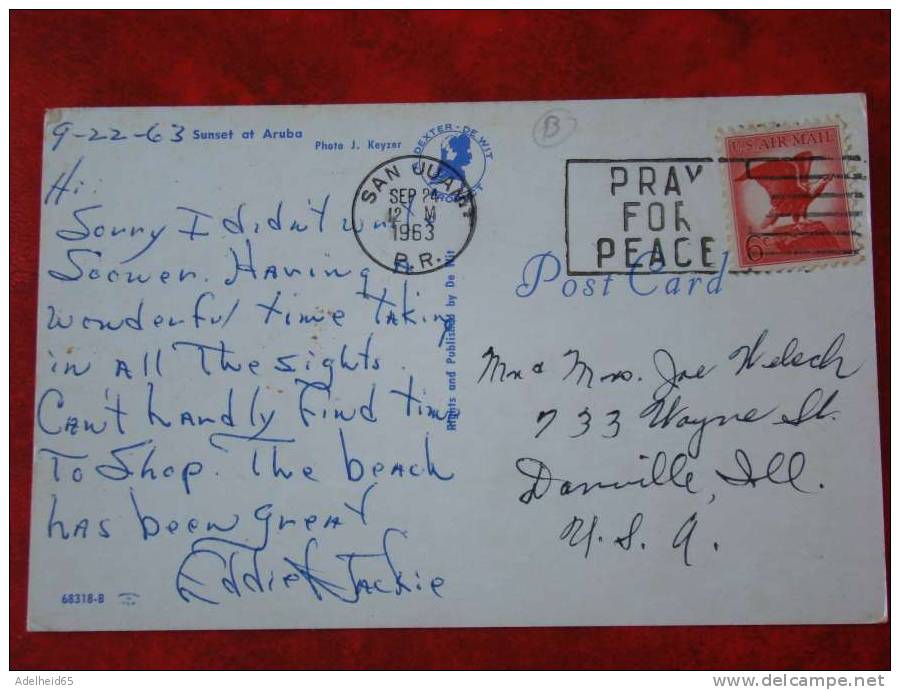 9-22-63 Sunset at Aruba
Photo J. Keyzer
DEXTER - DE WIT
Hi.
Sorry I didn't
Sooner. Having a
wonderful time taking
in all the sights.
Can't handly find time
To Shop. The beach
has been great
Eddie & Jackie
68318-B
Rights and Published by De Wit
B
SAN JUAN
SEP 24
12 M
1963
P.R.
PRAY
FOR
PEACE
U.S. AIR MAIL
6c
Post Card
Mr & Mrs. Joe Welsch
733 Wayne St.
Danville, Ill.
U.S.A.
Adelheid65
www.delcampe.net